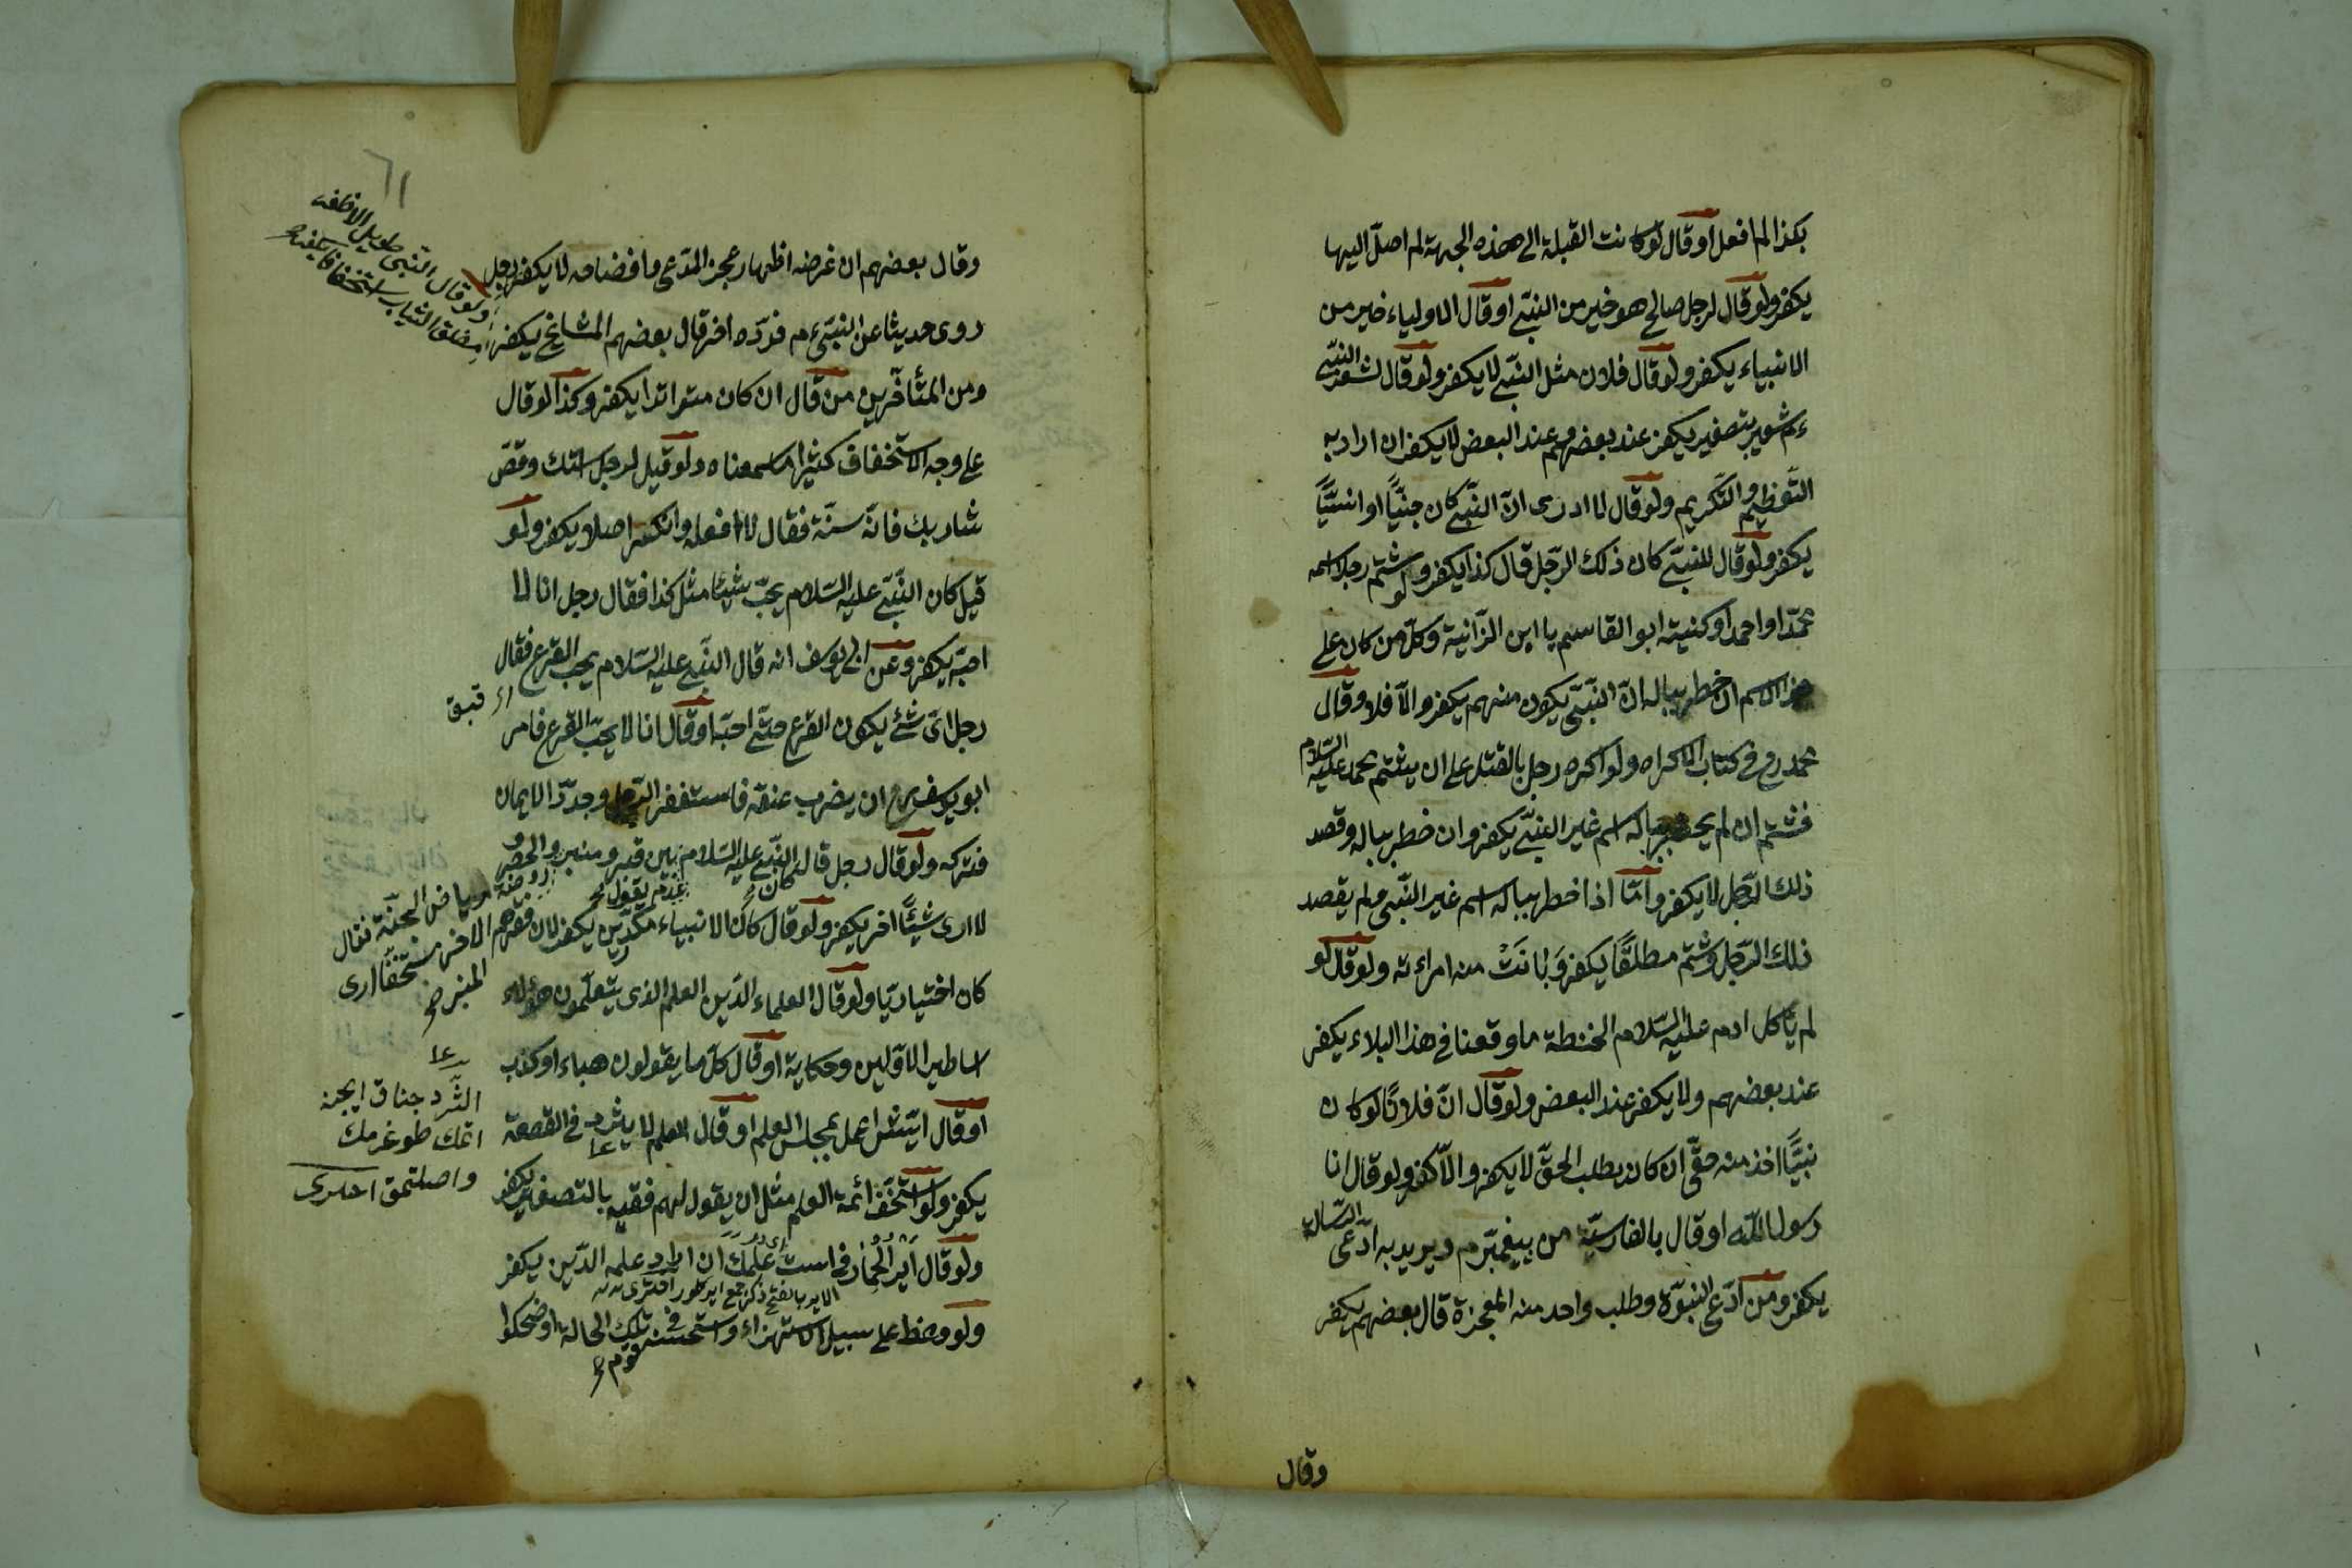 بكذا لما فعل او قال لو كانت القبلة الى هذه الجهة لم اصلّ اليها
يكفر ولو قال لرجل صالح هو خير من النبىّ او قال الاولياء خير من
الانبياء يكفر ولو قال فلان مثل النبىّ لا يكفر ولو قال لشعر النبىّ
عم شعير بتصغير يكفر عند بعضهم وعند البعض لا يكفر ان اراد به
التّعظيم والتّكريم ولو قال لا ادرى انّ النّبىّ كان جنيّاً او انسيّاً
يكفر ولو قال للنبىّ كان ذلك الرّجل قال كذا يكفر ولو شتم رجلا اسمه
محمّد او احمد او كنيته ابو القاسم يا ابن الزّانية وكلّ من كان على
هذا الاسم ان خطر بباله انّ النّبىّ يكون منهم يكفر والّا فلا وقال
محمد رح فى كتاب الاكراه ولو اكره رجل بالقتل على ان يشتم محمد عليه السّلام
فشتم ان لم يخطر بباله اسم غير النبىّ يكفر وان خطر بباله وقصد
ذلك الرّجل لا يكفر وامّا اذا خطر بباله اسم غير النّبى ولم يقصد
ذلك الرّجل وشتم مطلقًا يكفر وَبانَتْ منه امراءته ولو قال لو
لم يأكل ادم عليه السّلام الحنطة ما وقعنا فى هذا البلاء يكفر
عند بعضهم ولا يكفر عند البعض ولو قال انّ فلانًا لو كان
نبيًّا اخذ منه حقّى ان كان يطلب الحقّ لا يكفر والّا كفر ولو قال انا
رسول اللّه او قال بالفارسيّة من پيغمبرم ويريد به ادّعى الرّسالة
يكفر ومن ادّعى النبوّة وطلب واحد منه المعجزة قال بعضهم يكفر
وقال
٦١
وقال بعضهم ان غرضه اظهار عجز المدّعى وافضاحه لا يكفر رجل
روى حديثا عن النبىّ عم فردّه اخر قال بعضهم المشايخ يكفر
ومن المتأخّرين من قال ان كان متواترا يكفر وكذا لو قال
على وجه الاستخفاف كثيرا ما سمعناه ولو قيل لرجل استك وقصّ
شاربك فانّه سنّة فقال لا افعله وانكره اصلا يكفر ولو
قيل كان النّبىّ عليه السّلام يحبّ شيئًا مثل كذا فقال رجل انا لا
احبّه يكفر وعن ابى يوسف انه قال النّبىّ عليه السّلام يحب القرع فقال
رجل اىّ شئ يكون القرع حتّى احبّه او قال انا لا يحبّ القرع فامر
ابو يوسف رح ان يضرب عنقه فاستغفر الرّجل وجدّد الايمان
فتركه ولو قال رجل قال النّبىّ عليه السّلام بين قبرى ومنبرى
لا ارى شيئًا اخر يكفر ولو قال كان الانبياء مكدّين يكفر لان فقرهم
كان اختياريّا ولو قال العلماء الدّين العلم الذى يتعلّمون هؤلاء
اساطير الاوّلين وحكاية او قال كلّ ما يقولون هباء او كذب
او قال ايش اعمل بمجلس العلم او قال العلم لا يثرد فى القصعة
يكفر ولو استخفّ ائمة العلم مثل ان يقول لهم فقيه بالتصغير يكفر
ولو قال اَير الْحِمَار فى است عِلْمِكَ ان اراد علمه الدّين يكفر
ولو وعظ على سبيل الاستهزاء واستحسنه قوم فى تلك الحالة او ضحكوا
ولو قال النبى طويل الاظفه
خلق الثياب استخفافا يكفر
قبق
روضة من رياض الجنّة فقال
الاخر مستخفّا ارى
المنبر
الثّرد چناق ايچنه
اتمك طوغرمق
واصلتمق اخترى
الاير بالفتح ذكر جمع اير كلور اخترى